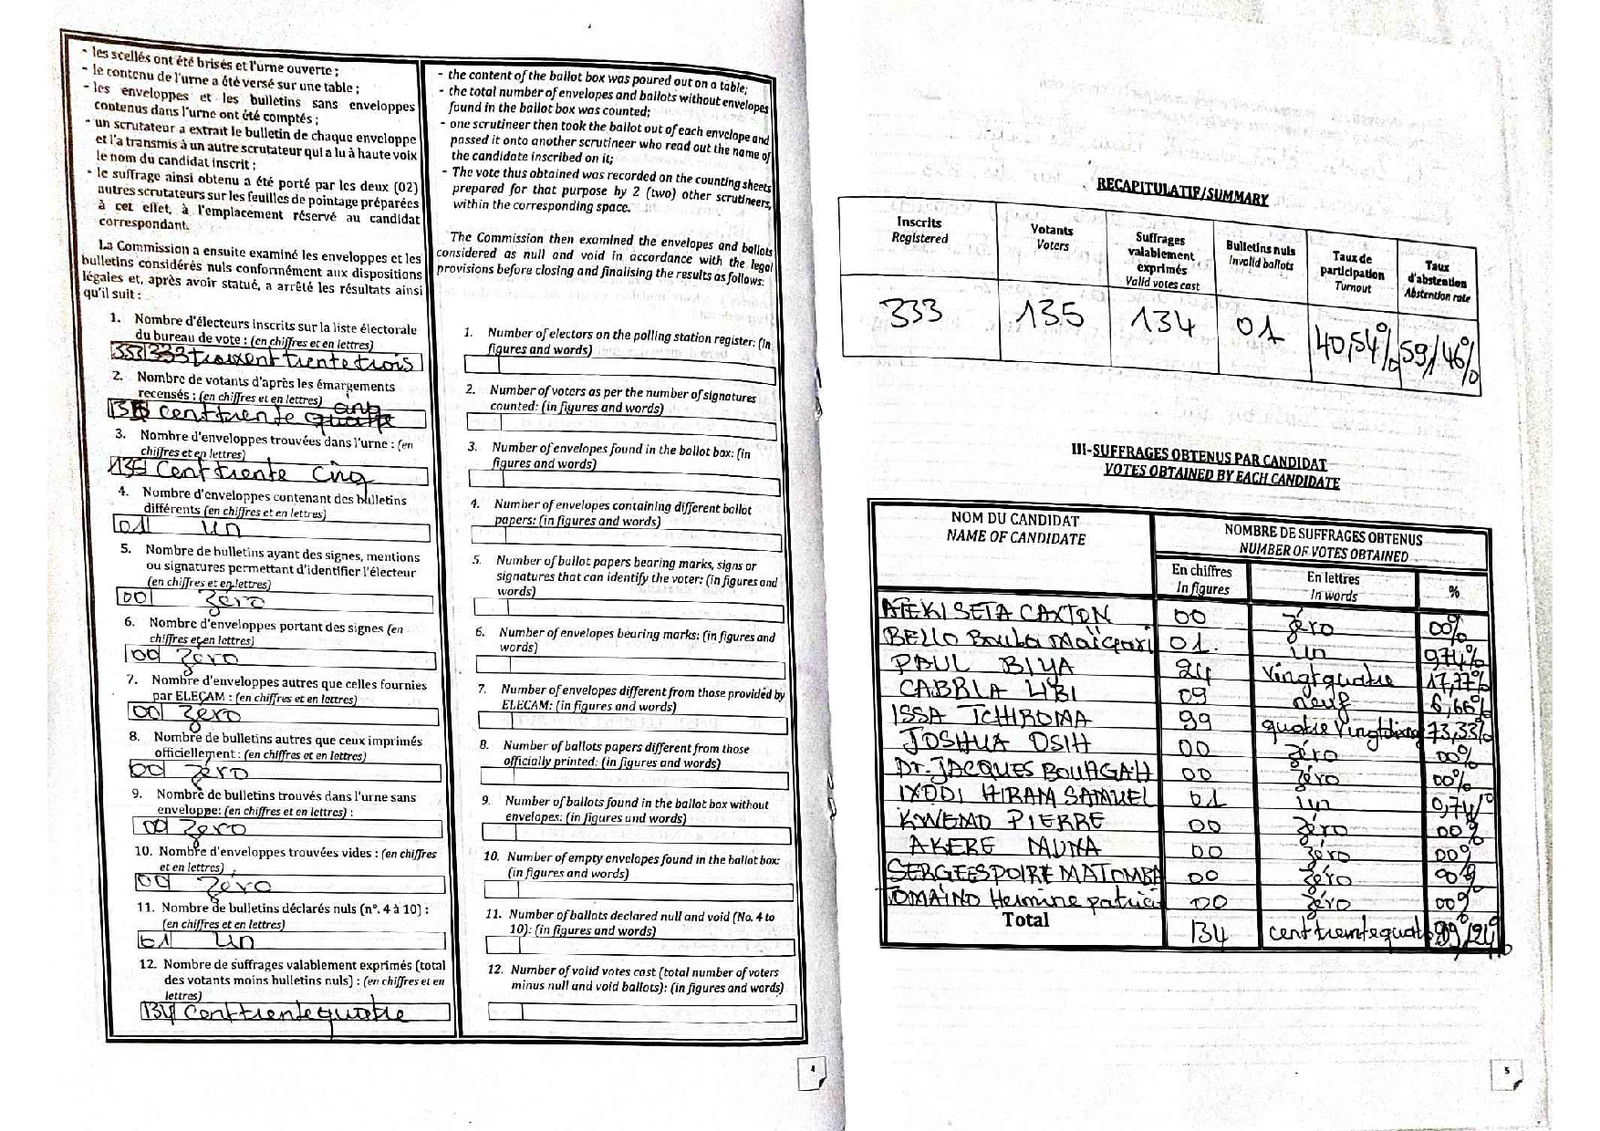 - les scellés ont été brisés et l'urne ouverte ;
- le contenu de l'urne a été versé sur une table ;
- les enveloppes et les bulletins sans enveloppes
contenus dans l'urne ont été comptés ;
- un scrutateur a extrait le bulletin de chaque enveloppe
et l'a transmis à un autre scrutateur qui a lu à haute voix
le nom du candidat inscrit ;
- le suffrage ainsi obtenu a été porté par les deux (02)
autres scrutateurs sur les feuilles de pointage préparées
à cet effet, à l'emplacement réservé au candidat
correspondant.
La Commission a ensuite examiné les enveloppes et les
bulletins considérés nuls conformément aux dispositions
légales et, après avoir statué, a arrêté les résultats ainsi
qu'il suit :
1. Nombre d'électeurs inscrits sur la liste électorale
du bureau de vote : (en chiffres et en lettres)
333 333 troixent trente trois
2. Nombre de votants d'après les émargements
recensés : (en chiffres et en lettres) cinq
135 cent trente quatre
3. Nombre d'enveloppes trouvées dans l'urne : (en
chiffres et en lettres)
135 Cent trente Cinq
4. Nombre d'enveloppes contenant des bulletins
différents (en chiffres et en lettres)
01 un
5. Nombre de bulletins ayant des signes, mentions
ou signatures permettant d'identifier l'électeur
(en chiffres et en lettres)
00 zéro
6. Nombre d'enveloppes portant des signes (en
chiffres et en lettres)
00 zéro
7. Nombre d'enveloppes autres que celles fournies
par ELECAM : (en chiffres et en lettres)
00 zéro
8. Nombre de bulletins autres que ceux imprimés
officiellement : (en chiffres et en lettres)
00 zéro
9. Nombre de bulletins trouvés dans l'urne sans
enveloppe: (en chiffres et en lettres) :
00 zéro
10. Nombre d'enveloppes trouvées vides : (en chiffres
et en lettres)
00 zéro
11. Nombre de bulletins déclarés nuls (n°. 4 à 10) :
(en chiffres et en lettres)
01 un
12. Nombre de suffrages valablement exprimés (total
des votants moins bulletins nuls) : (en chiffres et en
lettres)
134 Cent trente quatre
- the content of the ballot box was poured out on a table;
- the total number of envelopes and ballots without envelopes
found in the ballot box was counted;
- one scrutineer then took the ballot out of each envelope and
passed it onto another scrutineer who read out the name of
the candidate inscribed on it;
- The vote thus obtained was recorded on the counting sheets
prepared for that purpose by 2 (two) other scrutineers,
within the corresponding space.
The Commission then examined the envelopes and ballots
considered as null and void in accordance with the legal
provisions before closing and finalising the results as follows:
1. Number of electors on the polling station register: (in
figures and words)
2. Number of voters as per the number of signatures
counted: (in figures and words)
3. Number of envelopes found in the ballot box: (in
figures and words)
4. Number of envelopes containing different ballot
papers: (in figures and words)
5. Number of ballot papers bearing marks, signs or
signatures that can identify the voter: (in figures and
words)
6. Number of envelopes bearing marks: (in figures and
words)
7. Number of envelopes different from those provided by
ELECAM: (in figures and words)
8. Number of ballots papers different from those
officially printed: (in figures and words)
9. Number of ballots found in the ballot box without
envelopes: (in figures and words)
10. Number of empty envelopes found in the ballot box:
(in figures and words)
11. Number of ballots declared null and void (No. 4 to
10): (in figures and words)
12. Number of valid votes cast (total number of voters
minus null and void ballots): (in figures and words)
4
RECAPITULATIF/SUMMARY
Inscrits Registered Votants Voters Suffrages valablement exprimés Valid votes cast Bulletins nuls Invalid ballots Taux de participation Turnout Taux d'abstention Abstention rate
333 135 134 01 40,54% 59,46%
III-SUFFRAGES OBTENUS PAR CANDIDAT
VOTES OBTAINED BY EACH CANDIDATE
NOM DU CANDIDAT NOMBRE DE SUFFRAGES OBTENUS
NAME OF CANDIDATE NUMBER OF VOTES OBTAINED
En chiffres En lettres %
In figures In words
ATEKI SETA CAXTON 00 zéro 00%
BELLO Bouba Maïgari 01. un 0,74%
PAUL BIYA 24 vingt quatre 17,77%
CABRLA LIBI 09 neuf 6,66%
ISSA TCHIROMA 99 quatre Vingt dix neuf 73,33%
JOSHUA OSIH 00 zéro 00%
Dr. JACQUES BOUHGAH 00 zéro 00%
IYODI HIRAM SAMUEL 01 un 0,74%
KWEMO PIERRE 00 zéro 00%
AKERE MUNA 00 zéro 00%
SERGE ESPOIRE MATOMBA 00 zéro 00%
TOMAINO Hermine patrici 00 zéro 00%
Total 134 cent trente quat 99,24%
5